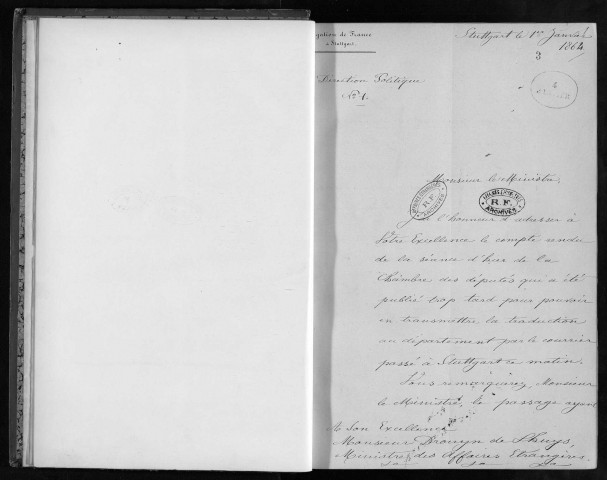 gation de France
à Stuttgart
Stuttgart le 1er Janvier
1864
3
Direction Politique
No 1.
Monsieur le Ministre,
R.F.
ARCHIVES
R.F.
ARCHIVES
J'ai l'honneur d'adresser à
Votre Excellence le compte rendu
de la séance d'hier de la
Chambre des députés qui a été
publié trop tard pour pouvoir
en transmettre la traduction
au département par le courrier
passé à Stuttgart ce matin.
Vous remarquerez, Monsieur
le Ministre, le passage ayant
A Son Excellence
Monsieur Drouyn de Lhuys,
Ministre des Affaires Etrangères.